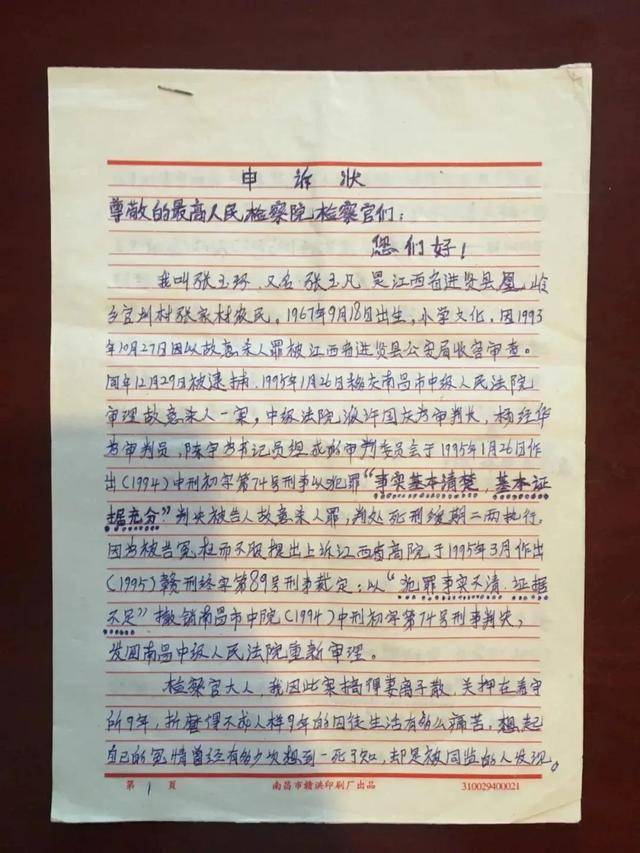 申诉状
尊敬的最高人民检察院检察官们：
您们好！
我叫张玉环，又名张玉凡是江西省进贤县凰岭
乡官圳村张家村农民。1967年9月18日出生，小学文化，因1993
年10月27日因以故意杀人罪被江西省进贤县公安局收容审查。
同年12月29日被逮捕，1995年1月26日经南昌市中级人民法院
审理故意杀人一案，中级法院派许国庆为审判长，杨经华
为审判员，陈宇为书记员组成的审判委员会于1995年1月26日作
出(1994)中刑初字第74号刑事以犯罪“事实基本清楚，基本证
据充分”判决被告人故意杀人罪，判处死刑缓期二两执行。
因为被告冤枉而不服提出上诉江西省高院于1995年3月作出
(1995)赣刑终字第89号刑事裁定：以“犯罪事实不清，证据
不足”撤销南昌市中院(1994)中刑初字第74号刑事判决，
发回南昌中级人民法院重新审理。
检察官大人，我因此案搞得妻离子散，关押在看守
所9年，折磨得不成人样9年的囚徒生活有多么痛苦，想起
自己的冤情曾经有多少次想到一死了知，却是被同监的人发现。
第1页
南昌市赣洪印刷厂出品
310029400021